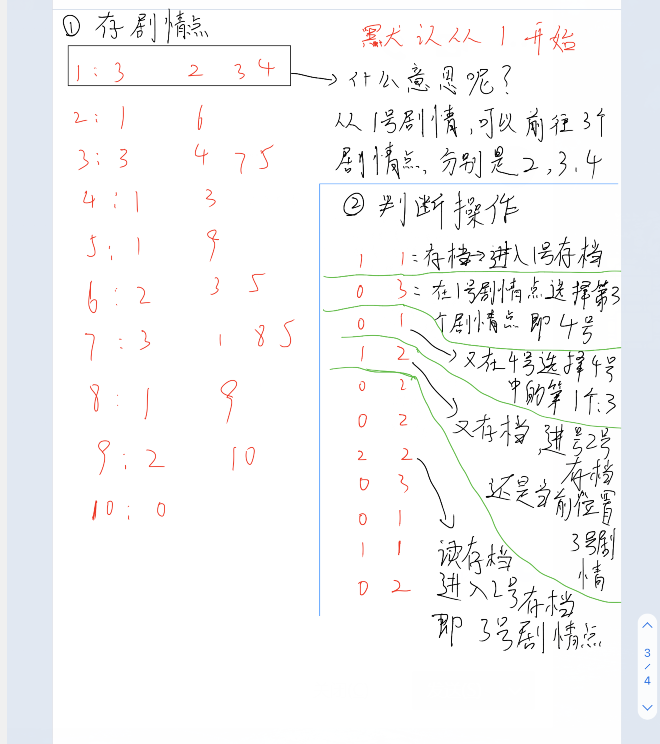 ① 存剧情点
黑犬认从 1 开始
1 : 3 2 3 4
什么意思呢?
2 : 1 6
3 : 3 4 7 5
4 : 1 3
5 : 1 9
6 : 2 3 5
7 : 3 1 8 5
8 : 1 9
9 : 2 10
10 : 0
从1号剧情,可以前往3个
剧情点、分别是2,3、4
② 判断操作
1 1 : 存档→进入1号存档
0 3 : 在1号剧情点选择第3
个剧情点即4号
0 1
又在4号选择4号
中的第1个:3
1 2
又存档,进号2号
存档
还是当前位置
3号剧
情
0 2
0 2
2 2
读存档
进入2号存档
即 3号剧情点
0 3
0 1
1 1
0 2
3
/
4